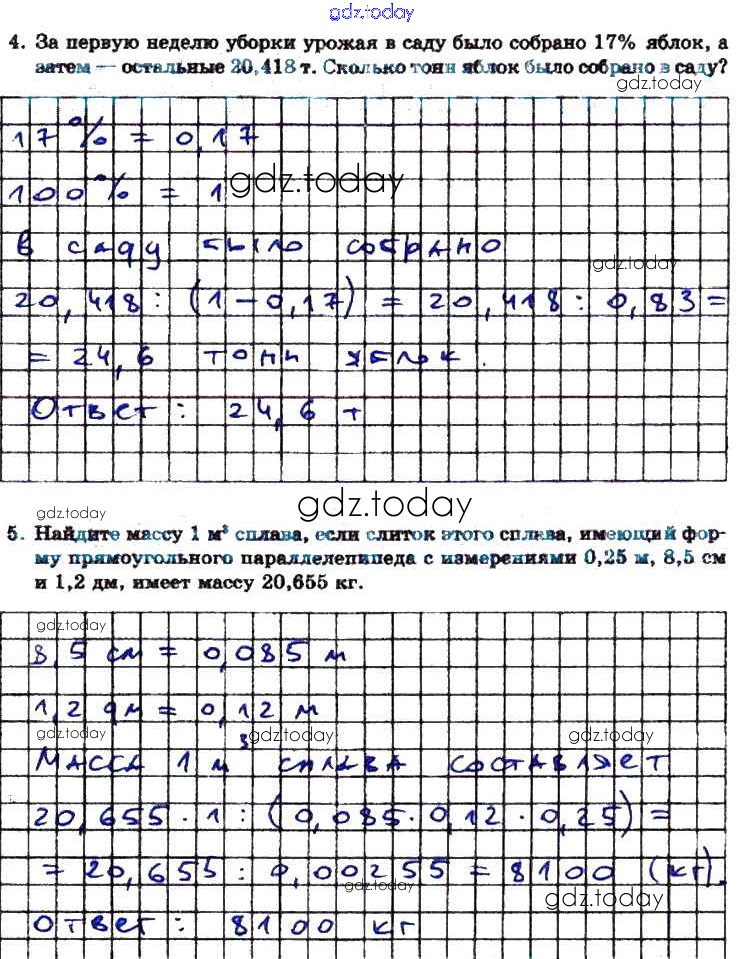 gdz.today
4. За первую неделю уборки урожая в саду было собрано 17% яблок, а
затем — остальные 20,418 т. Сколько тонн яблок было собрано в саду?
gdz.today
17% = 0,17
100% = 1
gdz.today
В саду было собрано
gdz.today
20,418 : (1 - 0,17) = 20,418 : 0,83 =
= 24,6 тонн яблок.
Ответ : 24,6 т
gdz.today
gdz.today
5. Найдите массу 1 м³ сплава, если слиток этого сплава, имеющий фор-
му прямоугольного параллелепипеда с измерениями 0,25 м, 8,5 см
и 1,2 дм, имеет массу 20,655 кг.
gdz.today
8,5 см = 0,085 м
1,2 дм = 0,12 м
gdz.today
gdz.today
gdz.today
Масса 1 м³ сплава составляет
20,655 · 1 : (0,085 · 0,12 · 0,25) =
= 20,655 : 0,00255 = 8100 (кг).
gdz.today
gdz.today
Ответ : 8100 кг